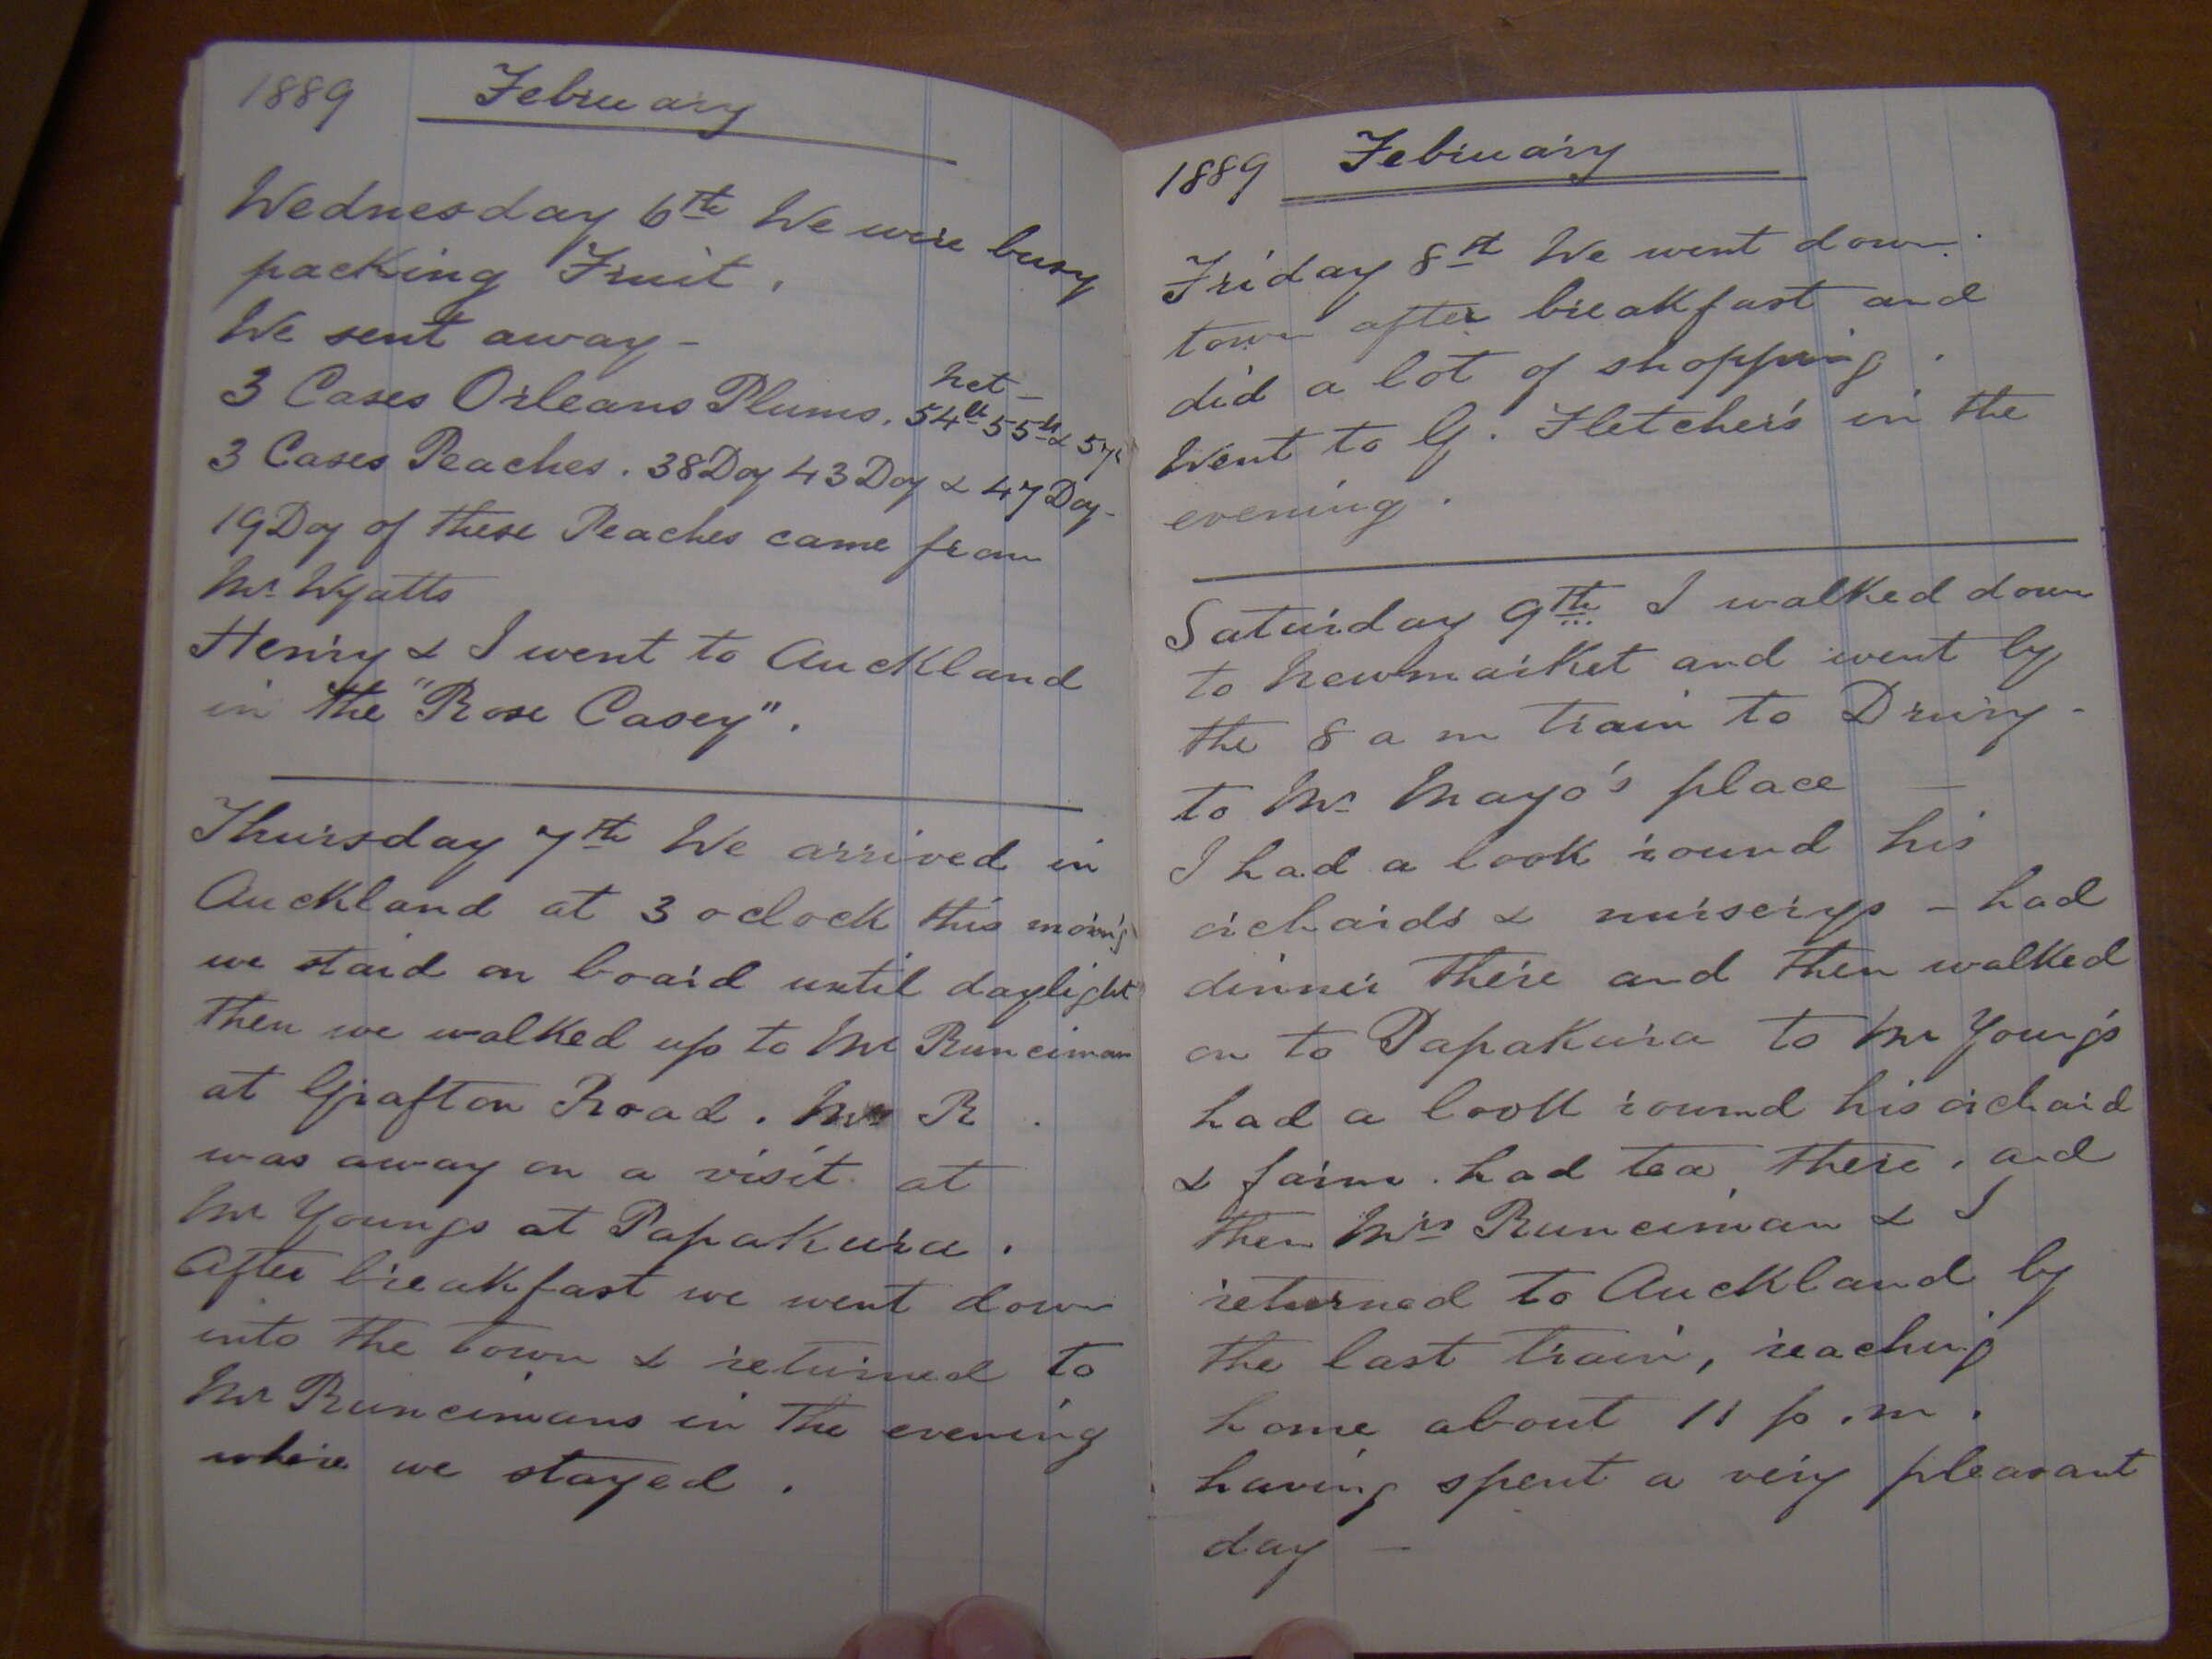 1889 February
Wednesday 6th We were busy
packing Fruit.
We sent away -
3 Cases Orleans Plums. net - 54lb 55lb & 57
3 Cases Peaches. 38Doz 43Doz & 47Doz-
19Doz of these Peaches came from
Mr Wyatts
Henry & I went to Auckland
in the "Rose Casey".
Thursday 7th We arrived in
Auckland at 3 oclock this morning
we staid on board until daylight
then we walked up to Mr Runciman
at Grafton Road. Mrs R.
was away on a visit at
Mr Youngs at Papakura.
After breakfast we went down
into the town & returned to
Mr Runcimans in the evening
where we stayed.
1889 February
Friday 8th We went down
town after breakfast and
did a lot of shopping.
Went to G. Fletchers in the
evening.
Saturday 9th I walked down
to Newmarket and went by
the 8 a m train to Drury -
to Mr Mayo's place —
I had a look round his
orchards & nurserys - had
dinner there and then walked
on to Papakura to Mr Youngs
had a look round his orchard
& farm. had tea there. and
then Mrs Runciman & I
returned to Auckland by
the last train, reaching
home about 11 p.m.
having spent a very pleasant
day —